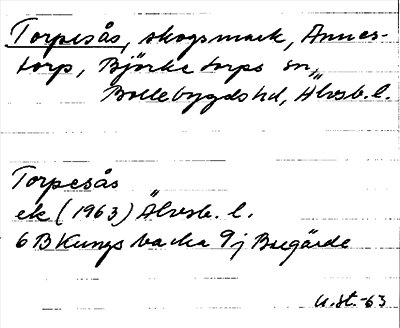 Torpesås, skogsmark, Annes-
torp, Björketorps sn,
Bollebygds hd, Älvsb. l.
Torpesås
ek (1963) Älvsb. l.
6 B Kungsbacka 9 j Buegärde
u.st.-63